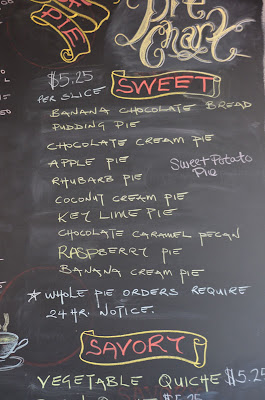 PIE
Pie
Chart
$5.25
PER SLICE
SWEET
BANANA CHOCOLATE BREAD
PUDDING PIE
CHOCOLATE CREAM PIE
APPLE PIE
Sweet Potato
Pie
RHUBARB PIE
COCONUT CREAM PIE
KEY LIME PIE
CHOCOLATE CARAMEL PECAN
RASPBERRY PIE
BANANA CREAM PIE
* WHOLE PIE ORDERS REQUIRE
24 HR. NOTICE.
SAVORY
VEGETABLE QUICHE $5.25